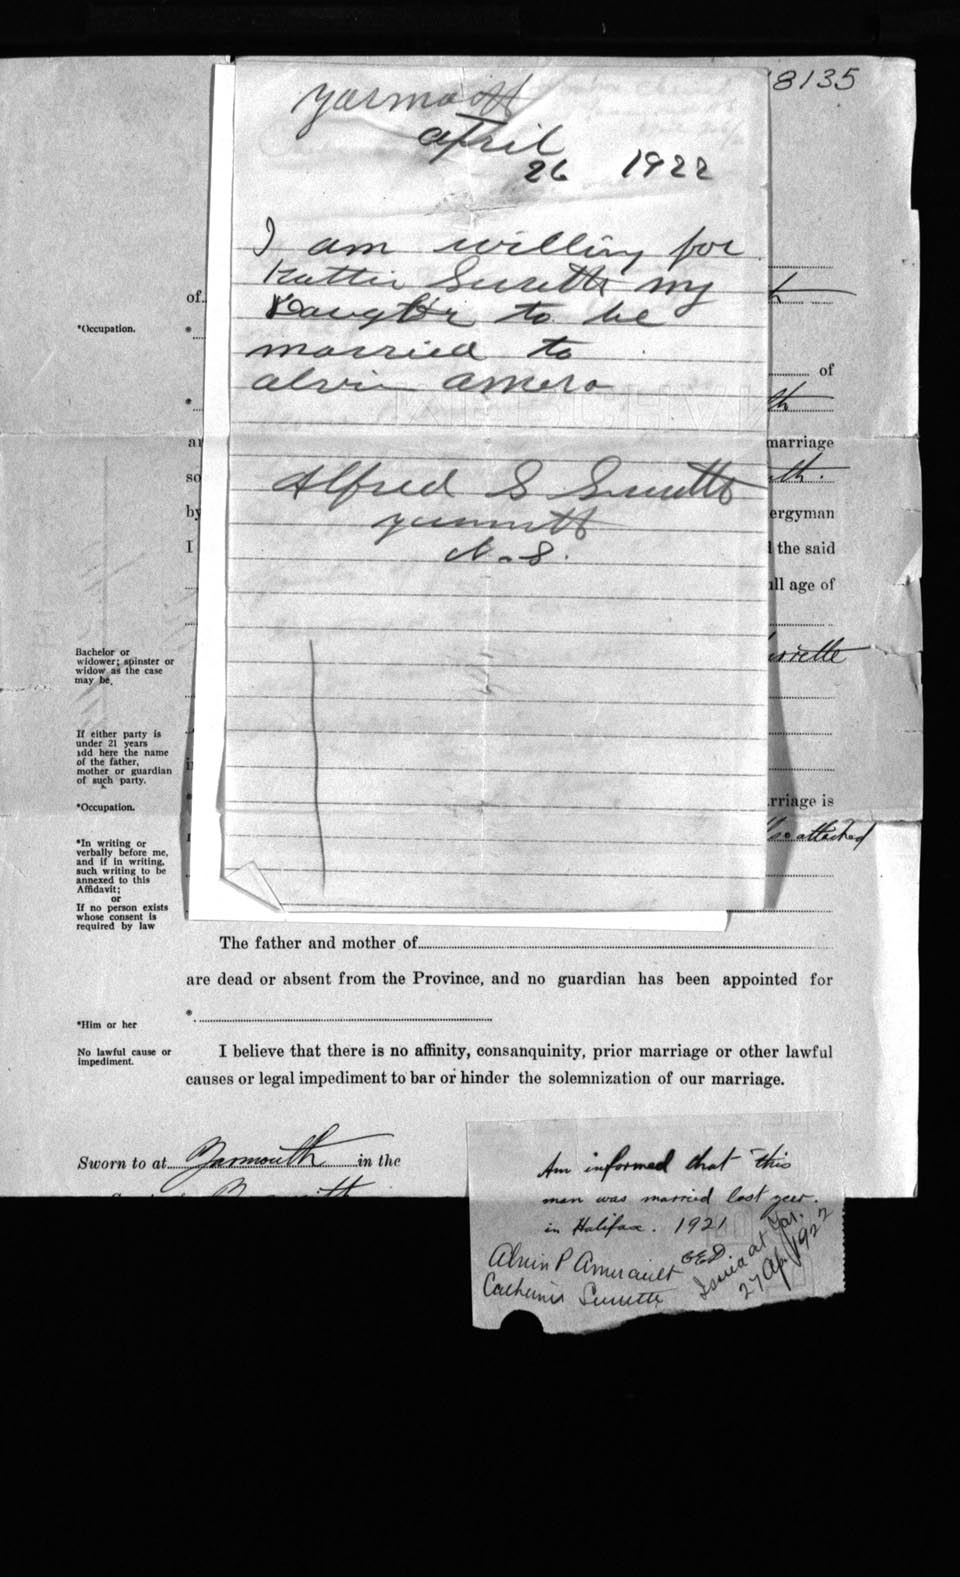 8135
Yarmoth
April
26 1922
I am willing for
Kattie Surette my
Daughter to be
married to
alvin amero
Alfred S Surette
yarmoth
N.S.
of
*Occupation.
*
of
*
marriage
so
by
ergyman
I
the said
ll age of
Bachelor or
widower; spinster or
widow as the case
may be.
If either party is
under 21 years
add here the name
of the father,
mother or guardian
of such party.
*Occupation.
rriage is
*In writing or
verbally before me,
and if in writing,
such writing to be
annexed to this
Affidavit;
or
If no person exists
whose consent is
required by law
attached
The father and mother of
are dead or absent from the Province, and no guardian has been appointed for
*
*Him or her
No lawful cause or
impediment.
I believe that there is no affinity, consanquinity, prior marriage or other lawful
causes or legal impediment to bar or hinder the solemnization of our marriage.
Sworn to at Yarmouth in the
Am informed that this
man was married last year.
in Halifax. 1921
Alvin P Amirault
Catherine Surette
Issued at Yar.
27 Ap/1922